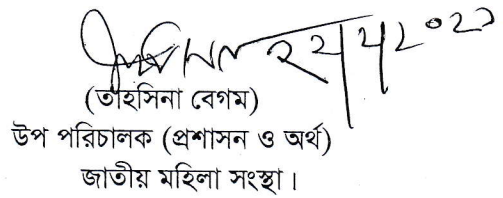 (তাহসিনা বেগম)
উপ পরিচালক (প্রশাসন ও অর্থ)
জাতীয় মহিলা সংস্থা।